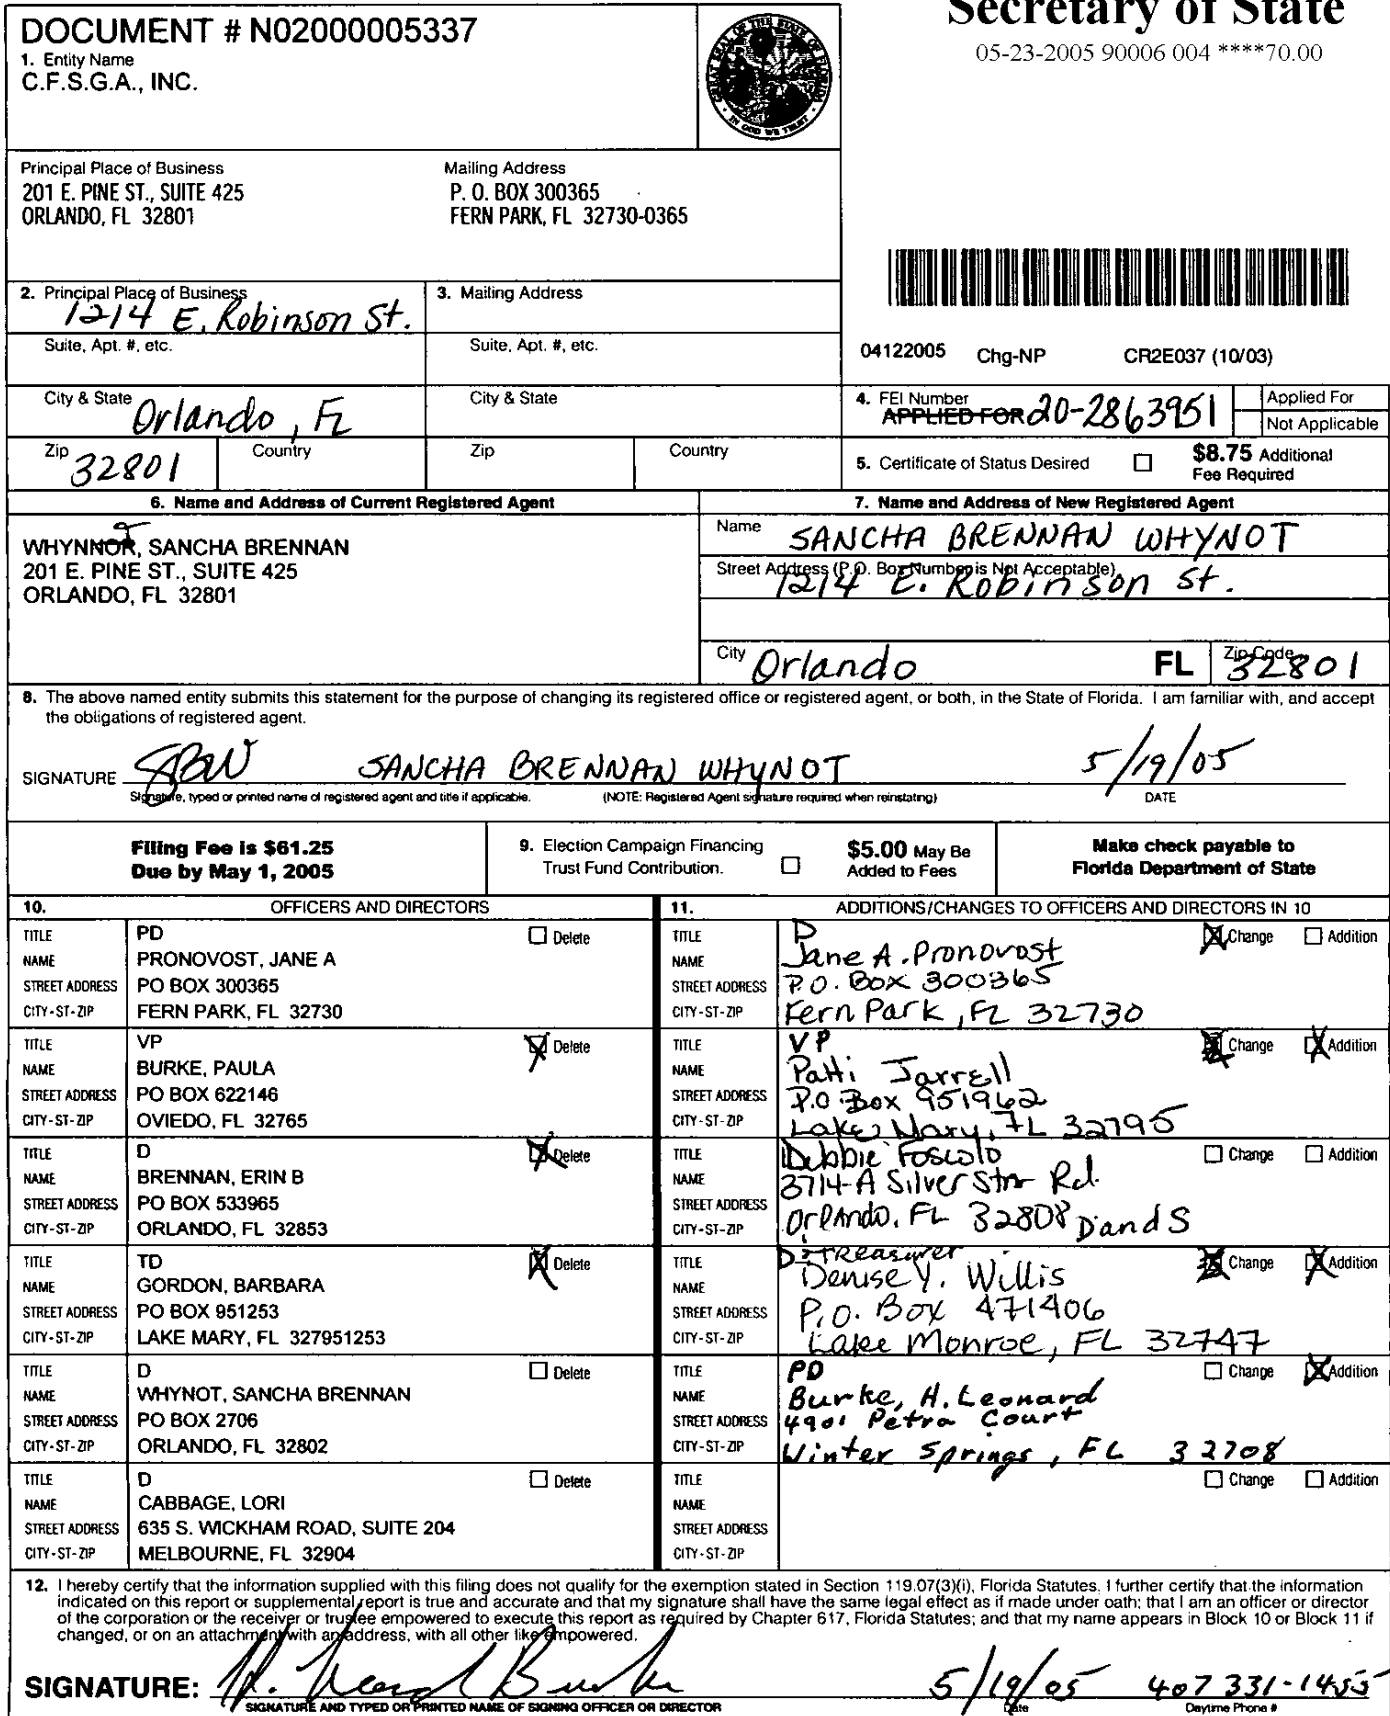 Secretary of State
05-23-2005 90006 004 ****70.00
DOCUMENT # N02000005337
1. Entity Name
C.F.S.G.A., INC.
GREAT SEAL OF THE STATE OF FLORIDA
IN GOD WE TRUST
Principal Place of Business
201 E. PINE ST., SUITE 425
ORLANDO, FL 32801
Mailing Address
P. O. BOX 300365
FERN PARK, FL 32730-0365
2. Principal Place of Business
1214 E. Robinson St.
3. Mailing Address
Suite, Apt. #, etc.
Suite, Apt. #, etc.
04122005 Chg-NP CR2E037 (10/03)
City & State
Orlando, FL
City & State
4. FEI Number
APPLIED FOR 20-2863951
Applied For
Not Applicable
Zip
32801
Country
Zip
Country
5. Certificate of Status Desired
$8.75 Additional
Fee Required
6. Name and Address of Current Registered Agent
WHYNNOR, SANCHA BRENNAN
201 E. PINE ST., SUITE 425
ORLANDO, FL 32801
7. Name and Address of New Registered Agent
Name SANCHA BRENNAN WHYNOT
Street Address (P.O. Box Number is Not Acceptable)
1214 E. Robinson St.
City Orlando FL Zip Code 32801
8. The above named entity submits this statement for the purpose of changing its registered office or registered agent, or both, in the State of Florida. I am familiar with, and accept
the obligations of registered agent.
SIGNATURE SBW SANCHA BRENNAN WHYNOT 5/19/05
Signature, typed or printed name of registered agent and title if applicable. (NOTE: Registered Agent signature required when reinstating) DATE
Filing Fee is $61.25
Due by May 1, 2005
9. Election Campaign Financing
Trust Fund Contribution.
$5.00 May Be
Added to Fees
Make check payable to
Florida Department of State
10. OFFICERS AND DIRECTORS
TITLE PD Delete
NAME PRONOVOST, JANE A
STREET ADDRESS PO BOX 300365
CITY-ST-ZIP FERN PARK, FL 32730
TITLE VP Delete
NAME BURKE, PAULA
STREET ADDRESS PO BOX 622146
CITY-ST-ZIP OVIEDO, FL 32765
TITLE D Delete
NAME BRENNAN, ERIN B
STREET ADDRESS PO BOX 533965
CITY-ST-ZIP ORLANDO, FL 32853
TITLE TD Delete
NAME GORDON, BARBARA
STREET ADDRESS PO BOX 951253
CITY-ST-ZIP LAKE MARY, FL 327951253
TITLE D Delete
NAME WHYNOT, SANCHA BRENNAN
STREET ADDRESS PO BOX 2706
CITY-ST-ZIP ORLANDO, FL 32802
TITLE D Delete
NAME CABBAGE, LORI
STREET ADDRESS 635 S. WICKHAM ROAD, SUITE 204
CITY-ST-ZIP MELBOURNE, FL 32904
11. ADDITIONS/CHANGES TO OFFICERS AND DIRECTORS IN 10
TITLE D Change Addition
NAME Jane A. Pronovost
STREET ADDRESS P.O. Box 300365
CITY-ST-ZIP Fern Park, FL 32730
TITLE VP Change Addition
NAME Patti Jarrell
STREET ADDRESS P.O Box 951962
CITY-ST-ZIP Lake Mary, FL 32795
TITLE Debbie Foscolo Change Addition
NAME 3714-A Silver Star Rd.
STREET ADDRESS
CITY-ST-ZIP Orlando, FL 32808 D and S
TITLE D-Treasurer Change Addition
NAME Denise Y. Willis
STREET ADDRESS P.O. Box 471406
CITY-ST-ZIP Lake Monroe, FL 32747
TITLE PD Change Addition
NAME Burke, H. Leonard
STREET ADDRESS 4901 Petra Court
CITY-ST-ZIP Winter Springs, FL 32708
TITLE Change Addition
NAME
STREET ADDRESS
CITY-ST-ZIP
12. I hereby certify that the information supplied with this filing does not qualify for the exemption stated in Section 119.07(3)(i), Florida Statutes. I further certify that the information
indicated on this report or supplemental report is true and accurate and that my signature shall have the same legal effect as if made under oath; that I am an officer or director
of the corporation or the receiver or trustee empowered to execute this report as required by Chapter 617, Florida Statutes; and that my name appears in Block 10 or Block 11 if
changed, or on an attachment with an address, with all other like empowered.
SIGNATURE: H. Leonard Burke 5/19/05 407 331-1455
SIGNATURE AND TYPED OR PRINTED NAME OF SIGNING OFFICER OR DIRECTOR Date Daytime Phone #